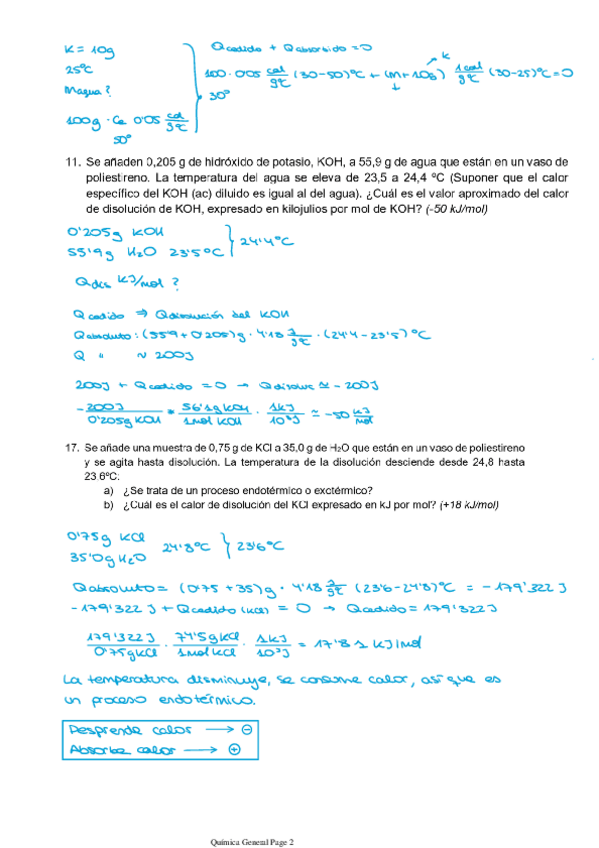 K = 10g
25ºC
Magua?
100g · Ce 0'05 cal/gºC
50º
30º
Qcedido + Qabsorbido = 0
100 · 0'05 cal/gºC (30-50)ºC + (M+10g) 1cal/gºC (30-25)ºC = 0
K
11. Se añaden 0,205 g de hidróxido de potasio, KOH, a 55,9 g de agua que están en un vaso de
poliestireno. La temperatura del agua se eleva de 23,5 a 24,4 ºC (Suponer que el calor
específico del KOH (ac) diluido es igual al del agua). ¿Cuál es el valor aproximado del calor
de disolución de KOH, expresado en kilojulios por mol de KOH? (-50 kJ/mol)
0'205g KOH
55'9g H₂O 23'5ºC } 24'4ºC
Qdis KJ/mol ?
Qcedido ⇒ Qdisolución del KOH
Qabsoluto: (559+0'205)g · 4'18 J/gºC · (24'4-23'5)ºC
Q " ~ 200J
200J + Qcedido = 0 → Qdisoluc ≃ - 200J
-200J/0'205gKOH * 56'1gKOH/1mol KOH · 1KJ/10³J ≃ -50 KJ/mol
17. Se añade una muestra de 0,75 g de KCl a 35,0 g de H₂O que están en un vaso de poliestireno
y se agita hasta disolución. La temperatura de la disolución desciende desde 24,8 hasta
23,6ºC:
a) ¿Se trata de un proceso endotérmico o exotérmico?
b) ¿Cuál es el calor de disolución del KCl expresado en kJ por mol? (+18 kJ/mol)
0'75g KCl
35'0g H₂O 24'8ºC } 23'6ºC
Qabsoluto = (0'75 + 35)g · 4'18 J/gºC (23'6-24'8)ºC = -179'322 J
-179'322 J + Qcedido (KCl) = 0 → Qcedido = 179'322J
179'322J/0'75gKCl · 74'5gKCl/1mol KCl · 1KJ/10³J = 17'81 KJ/mol
La temperatura disminuye, se consume calor, así que es
un proceso endotérmico.
Desprende calor → ⊖
Absorbe calor → ⊕
Química General Page 2